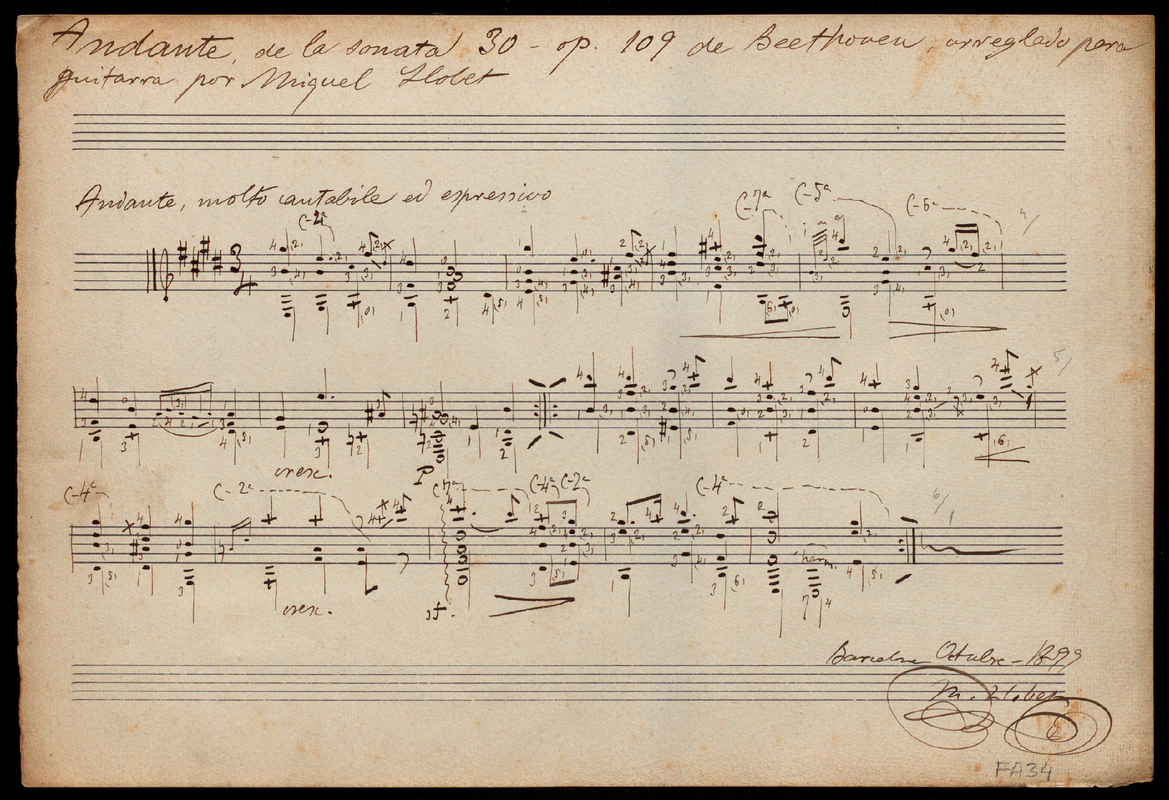 Andante, de la sonata 30 - op. 109 de Beethoven, arreglado para
guitarra por Miguel Llobet
Andante, molto cantabile ed espressivo
C-2ª
C-7ª C-5ª C-6ª
cresc.
P
C-4ª C-2ª C-7ª C-4ª C-2ª C-4ª
harm.
cresc. sf.
Barcelona Octubre - 1899
M. Llobet
FA34